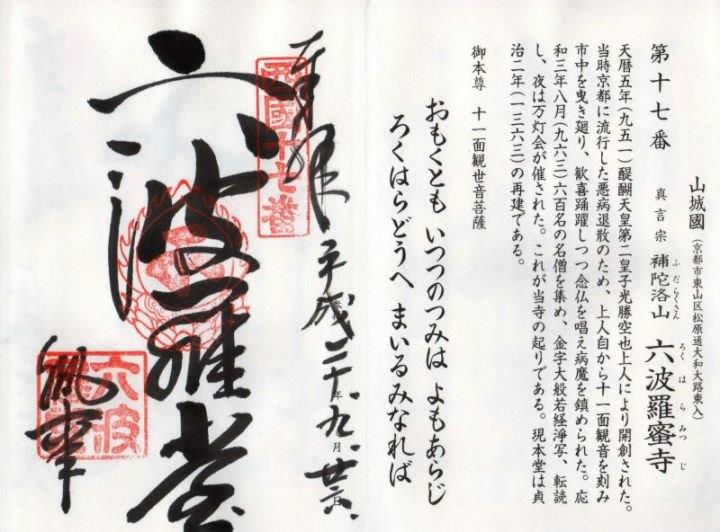 山城國（京都市東山区松原通大和大路東入）
第十七番　真言宗　補陀洛山　六波羅蜜寺
ふだらくさん　ろくはらみつじ
天暦五年（九五一）醍醐天皇第二皇子光勝空也上人により開創された。
当時京都に流行した悪病退散のため、上人自から十一面観音を刻み
市中を曳き廻り、歓喜踊躍しつつ念仏を唱え病魔を鎮められた。応
和三年八月（九六三）六百名の名僧を集め、金字大般若経浄写、転読
し、夜は万灯会が催された。これが当寺の起りである。現本堂は貞
治二年（一三六三）の再建である。
御本尊　十一面観世音菩薩
おもくとも　いつつのつみは　よもあらじ
ろくはらどうへ　まいるみなれば
奉拝　平成二十年九月廿日
西國十七番
六波羅堂
六波